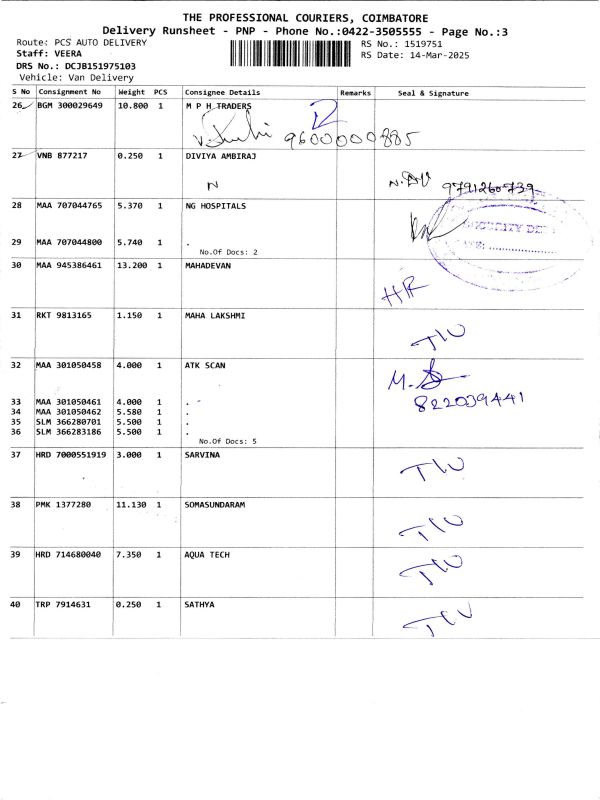 THE PROFESSIONAL COURIERS, COIMBATORE
Delivery Runsheet - PNP - Phone No.:0422-3505555 - Page No.:3
Route: PCS AUTO DELIVERY
Staff: VEERA
DRS No.: DCJB151975103
Vehicle: Van Delivery
RS No.: 1519751
RS Date: 14-Mar-2025
S No Consignment No Weight PCS Consignee Details Remarks Seal & Signature
26 BGM 300029649 10.800 1 M P H TRADERS
9600000885
27 VNB 877217 0.250 1 DIVIYA AMBIRAJ
N
9791260739
28 MAA 707044765 5.370 1 NG HOSPITALS
29 MAA 707044800 5.740 1 .
No.Of Docs: 2
30 MAA 945386461 13.200 1 MAHADEVAN
HR
31 RKT 9813165 1.150 1 MAHA LAKSHMI
32 MAA 301050458 4.000 1 ATK SCAN
33 MAA 301050461 4.000 1 .
822039441
34 MAA 301050462 5.580 1 .
35 SLM 366280701 5.500 1 .
36 SLM 366283186 5.500 1 .
No.Of Docs: 5
37 HRD 7000551919 3.000 1 SARVINA
38 PMK 1377280 11.130 1 SOMASUNDARAM
39 HRD 714680040 7.350 1 AQUA TECH
40 TRP 7914631 0.250 1 SATHYA